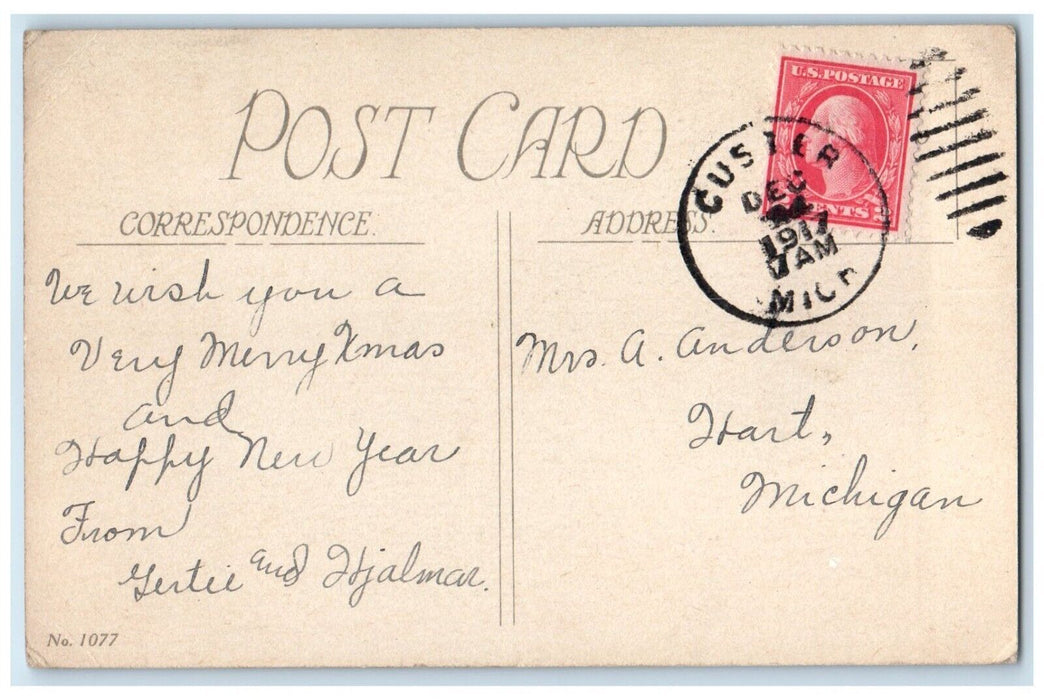 POST CARD
U.S. POSTAGE
CENTS 2
CUSTER
DEC
1917
7 AM
MICH
CORRESPONDENCE.
ADDRESS.
We wish you a
Very Merry Xmas
and
Happy New Year
From
Gertie and Hjalmar.
Mrs. A. Anderson,
Hart,
Michigan
No. 1077